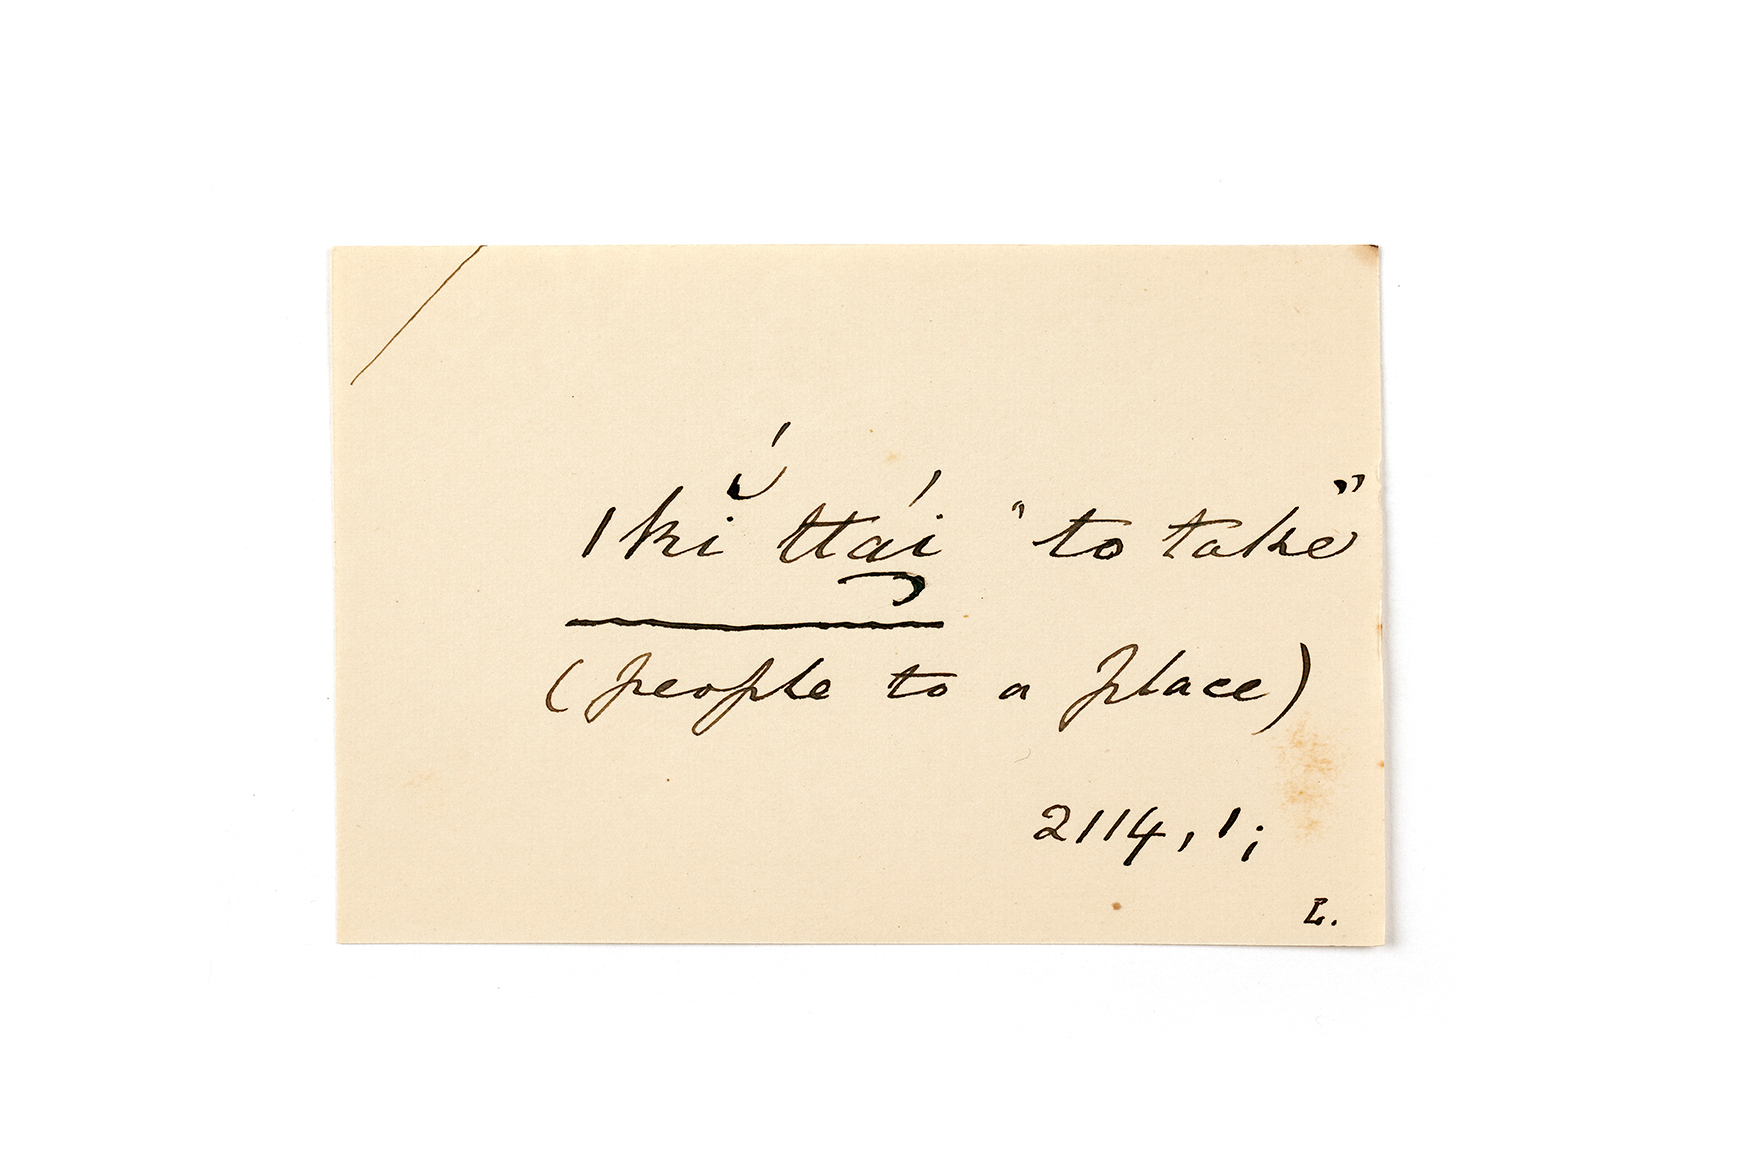 |kĭ́ ttá͜i "to take"
(people to a place)
2114, ';
L.